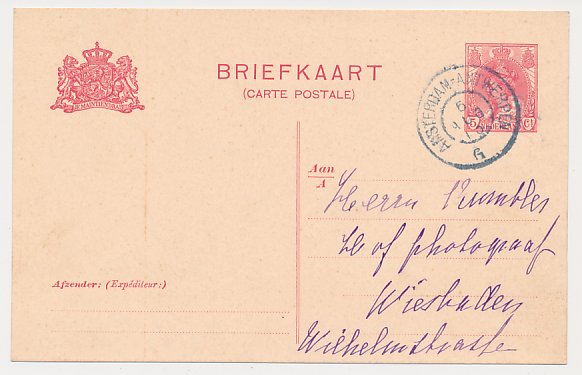 JE MAINTIENDRAI
BRIEFKAART
(CARTE POSTALE)
AMSTERDAM-ANTWERPEN
G
5 CT
Aan
A
Herrn
Hof photograaf
Wiesbaden
Wilhelmstrasse
Afzender: (Expéditeur:)